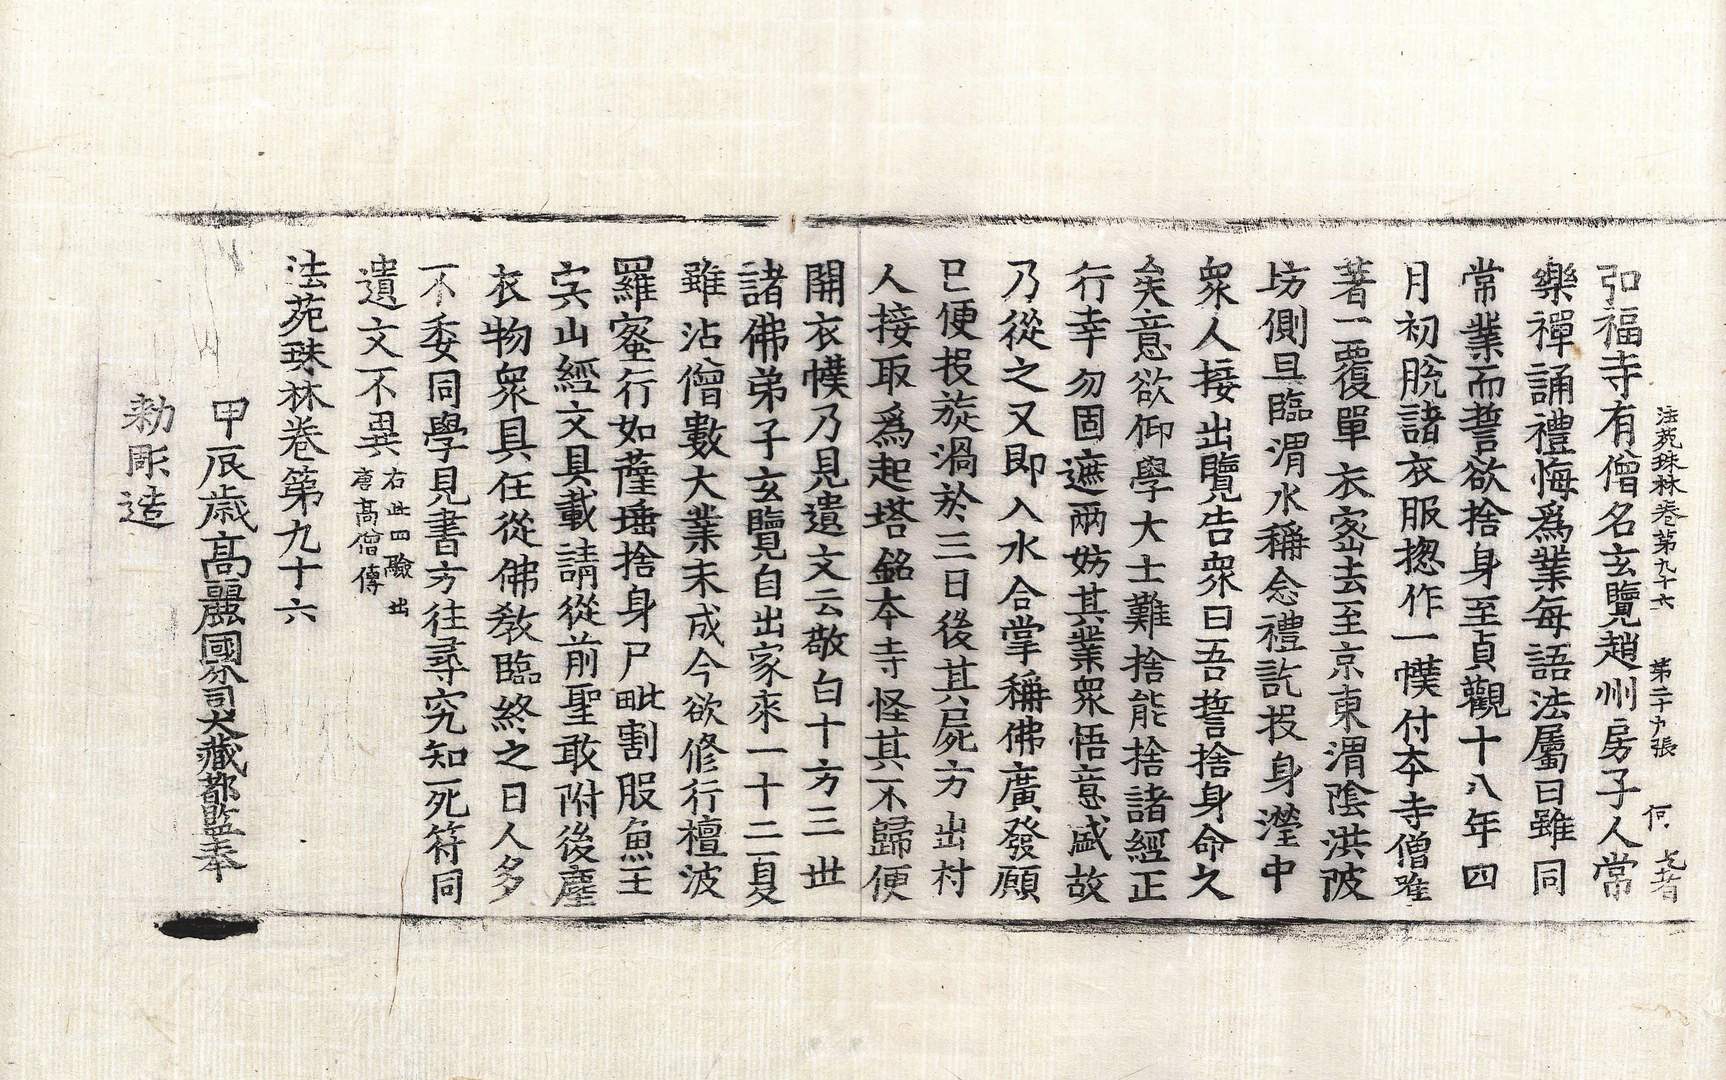 法苑珠林卷第九十六 第二十九張 何
弘福寺有僧名玄覽趙州房子人常
樂禪誦禮悔爲業每語法屬曰雖同
常業而誓欲捨身至貞觀十八年四
月初脫諸衣服揔作一幞付本寺僧唯
著一覆單衣密去至京東渭陰洪陂
坊側旦臨渭水稱念禮訖投身瀅中
衆人接出覽告衆曰吾誓捨身命久
矣意欲仰學大士難捨能捨諸經正
行幸勿固遮兩妨其業衆悟意盛故
乃從之又卽入水合掌稱佛廣發願
已便投旋渦於三日後其屍方出村
人接取爲起塔銘本寺怪其不歸便
開衣幞乃見遺文云敬白十方三世
諸佛弟子玄覽自出家來一十二夏
雖沾僧數大業未成今欲修行檀波
羅蜜行如薩埵捨身尸毗割股魚王
宍山經文具載請從前聖敢附後塵
衣物衆具任從佛敎臨終之日人多
不委同學見書方往尋究知死符同
遺文不異 右此四驗出唐高僧傳
法苑珠林卷第九十六
甲辰歲高麗國分司大藏都監奉
勅彫造